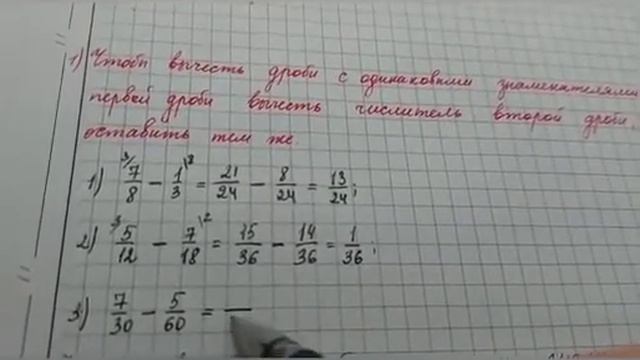 1) Чтобы вычесть дроби с одинаковыми знаменателями
первой дроби вычесть числитель второй дроби.
оставить тем же.
1) ³⁄ 7/8 − 1/3 \8 = 21/24 − 8/24 = 13/24;
2) ³⁄ 5/12 − 7/18 \2 = 15/36 − 14/36 = 1/36;
3) 7/30 − 5/60 = —